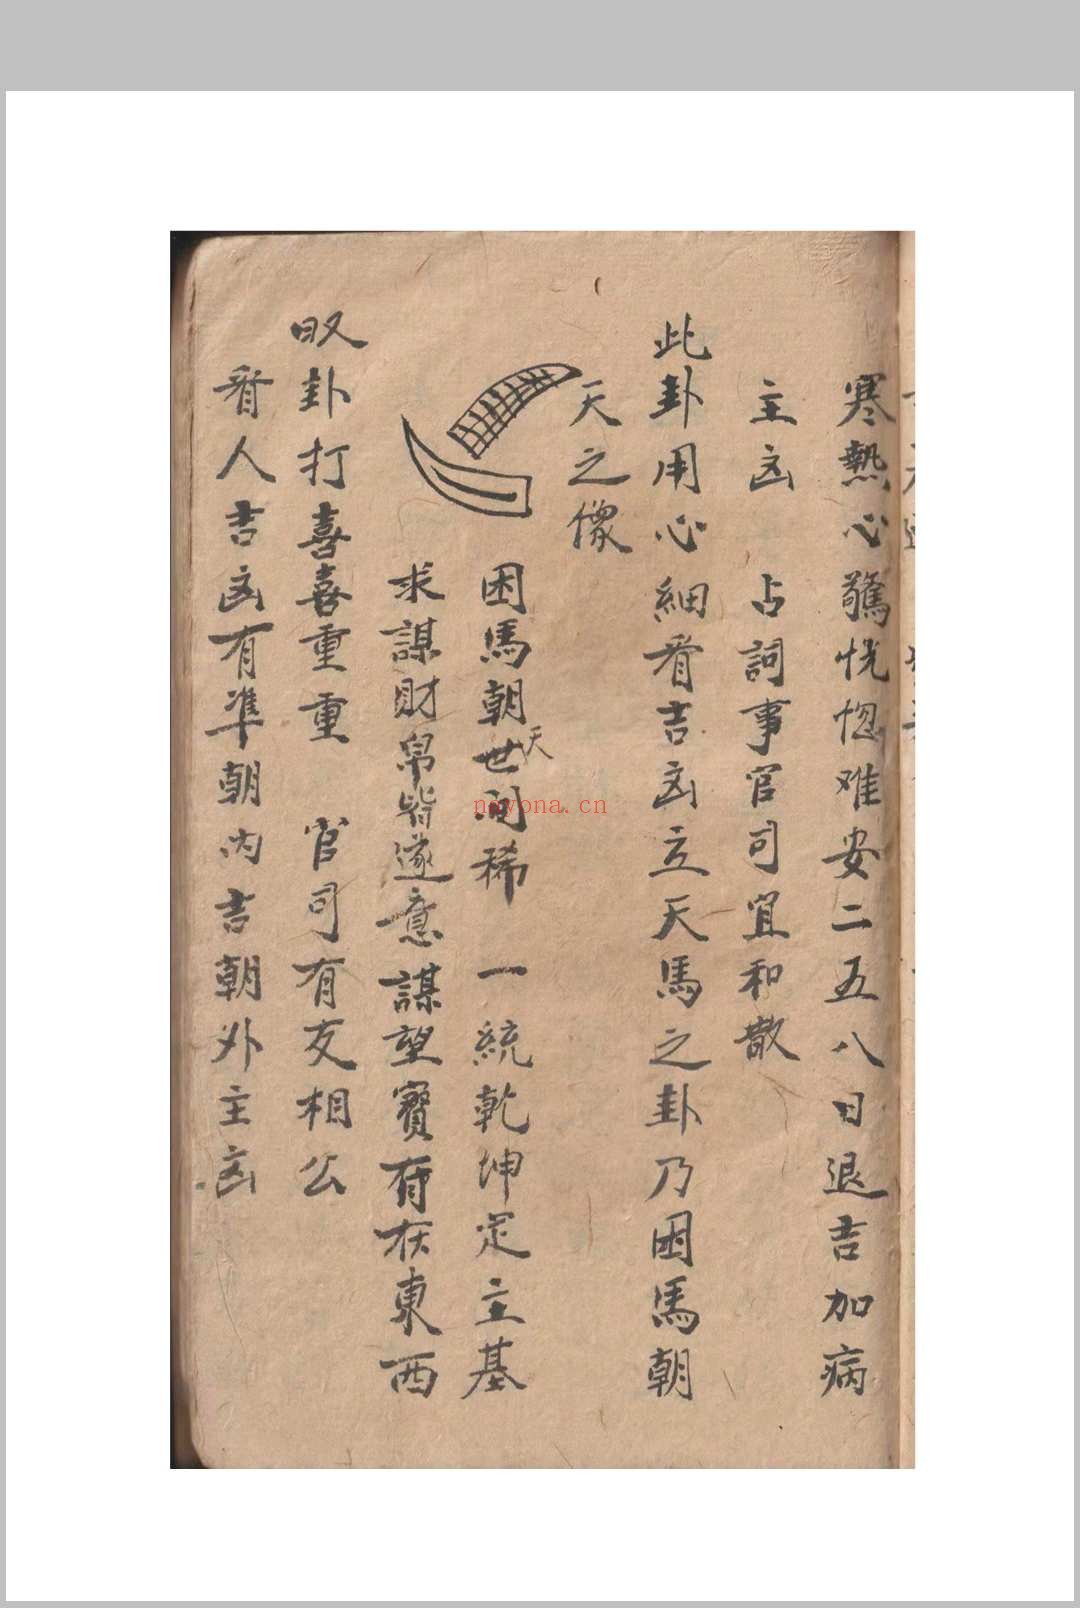 寒熱心驚恍惚难安二五八日退吉加病
主凶 占詞事官司宜和散
此卦用心細看吉凶立天馬之卦乃困馬朝
天之像
困馬朝天世間稀 一統乾坤定主基
求謀財帛皆遂意謀望寶有在東西
卦打喜喜重重 官司有友相公
看人吉凶有準朝內吉朝外主凶
noyona.cn